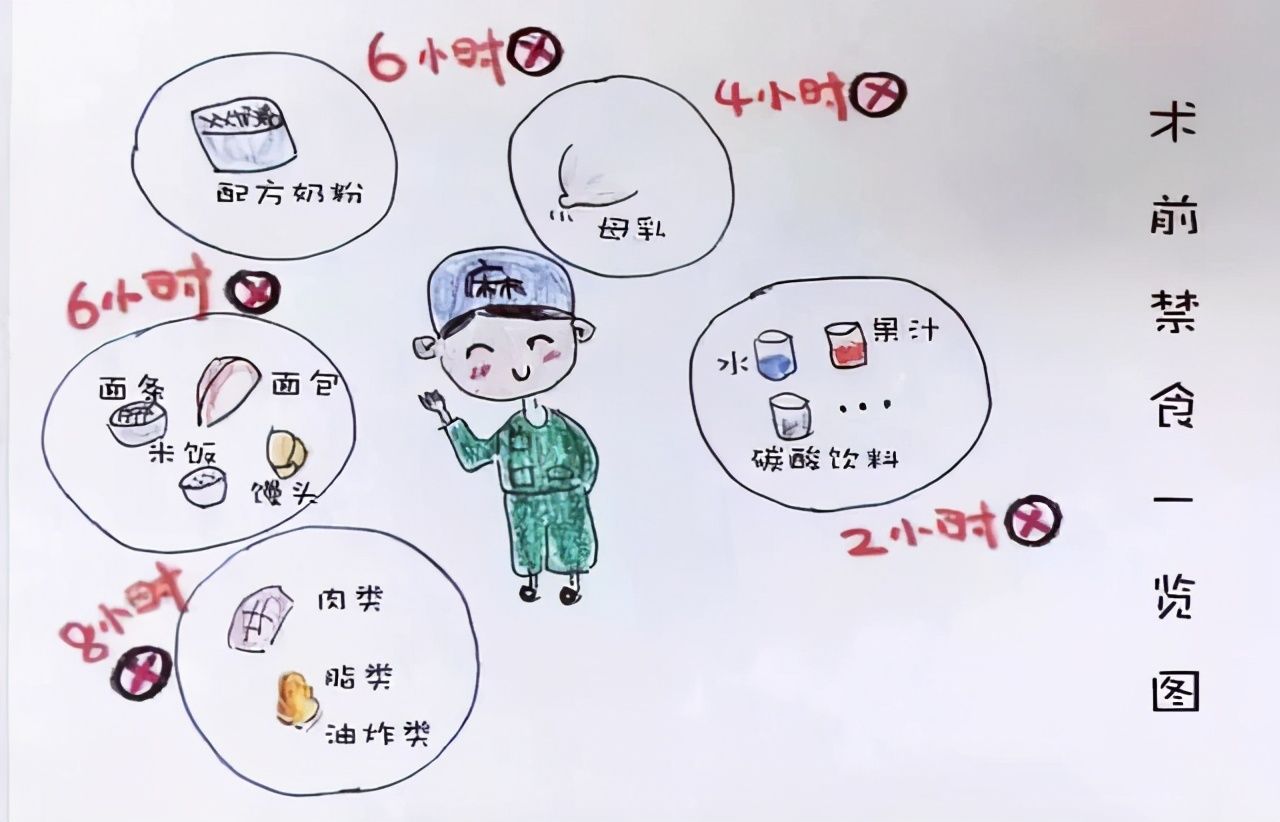 术前禁食一览图
6小时
XX奶粉
配方奶粉
4小时
母乳
麻
6小时
面条
面包
米饭
馒头
水
果汁
碳酸饮料
2小时
8小时
肉类
脂类
油炸类